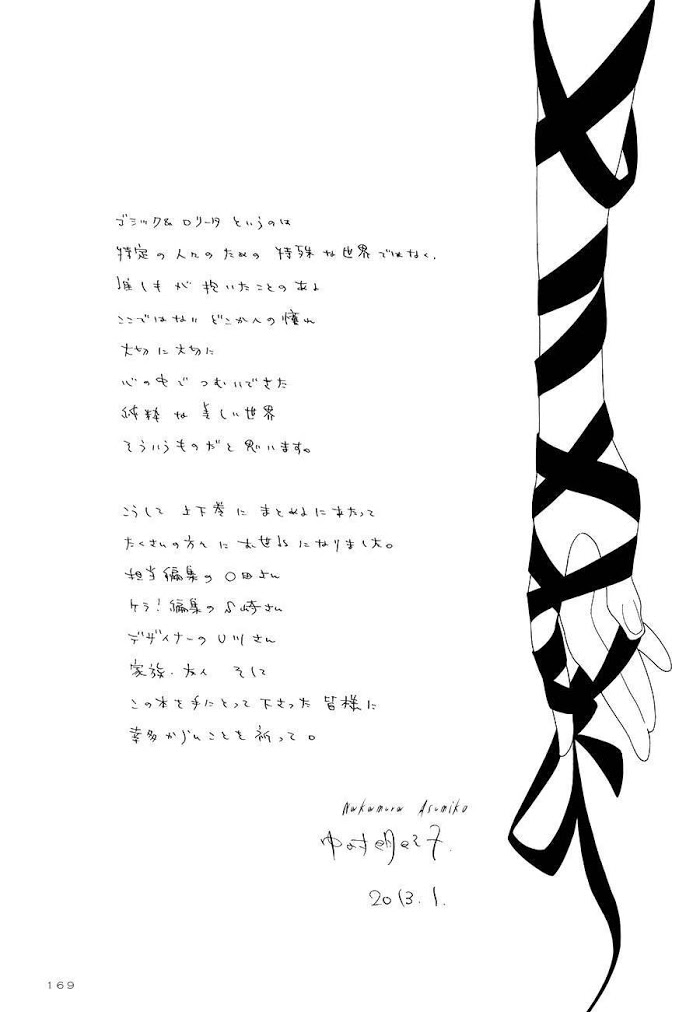 ゴシック& ロリータ というのは
特定の人々のための 特殊な世界ではなく、
誰しもが 抱いたことのある
ここではない どこかへの憧れ
大切に大切に
心の中で つむいできた
純粋な 美しい世界
そういうものだと思います。
こうして 上下巻に まとめるにあたって
たくさんの方々に お世話になりました。
担当編集の 〇田さん
ケラ!編集の 崎さん
デザイナーの 川さん
家族・友人 そして
この本を手にとって下さった 皆様に
幸多からんことを祈って。
Nakamura Asumiko
中村明日美子.
2013. 1.
169